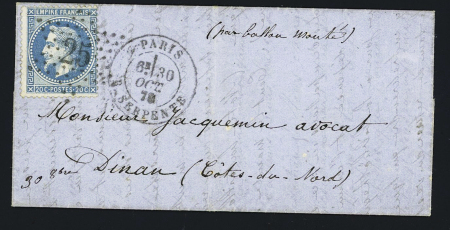 EMPIRE FRANÇAIS
25
20C POSTES 20C
PARIS
30
OCT.
70
R. SERPENTE
(par ballon monté)
Monsieur Jacquemin avocat
Dinan (Côtes-du-Nord)
30